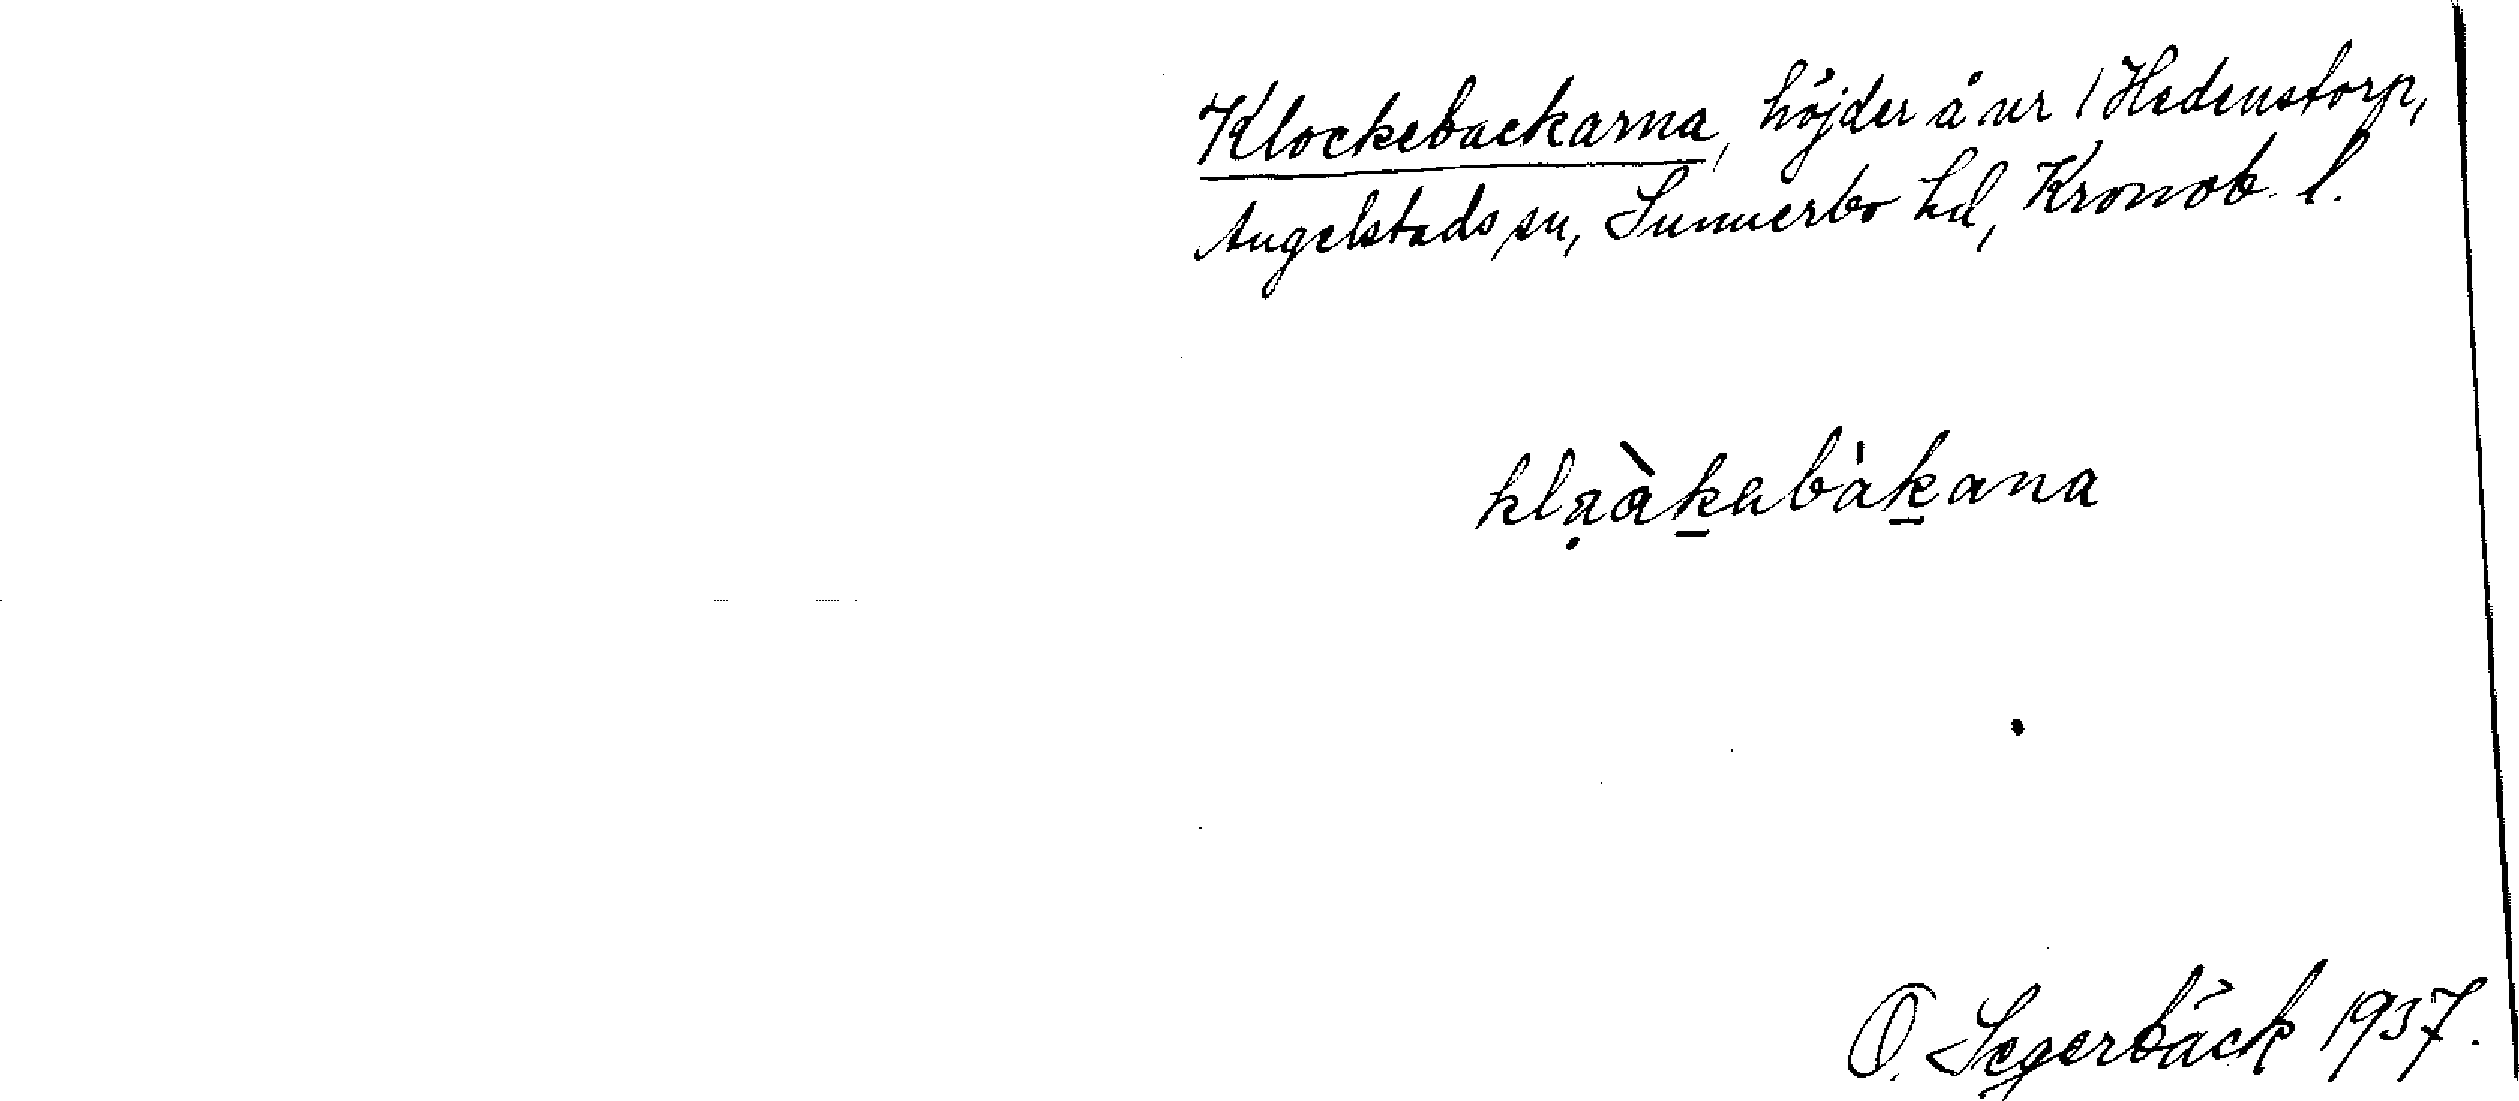 Klockebackarna, höjder å nr 1 Hedenstorp,
Angelstads sn, Sunnerbo hd, Kronob. l.
klạàk̠ebàk̠ana
O. Segerbäck 1937.